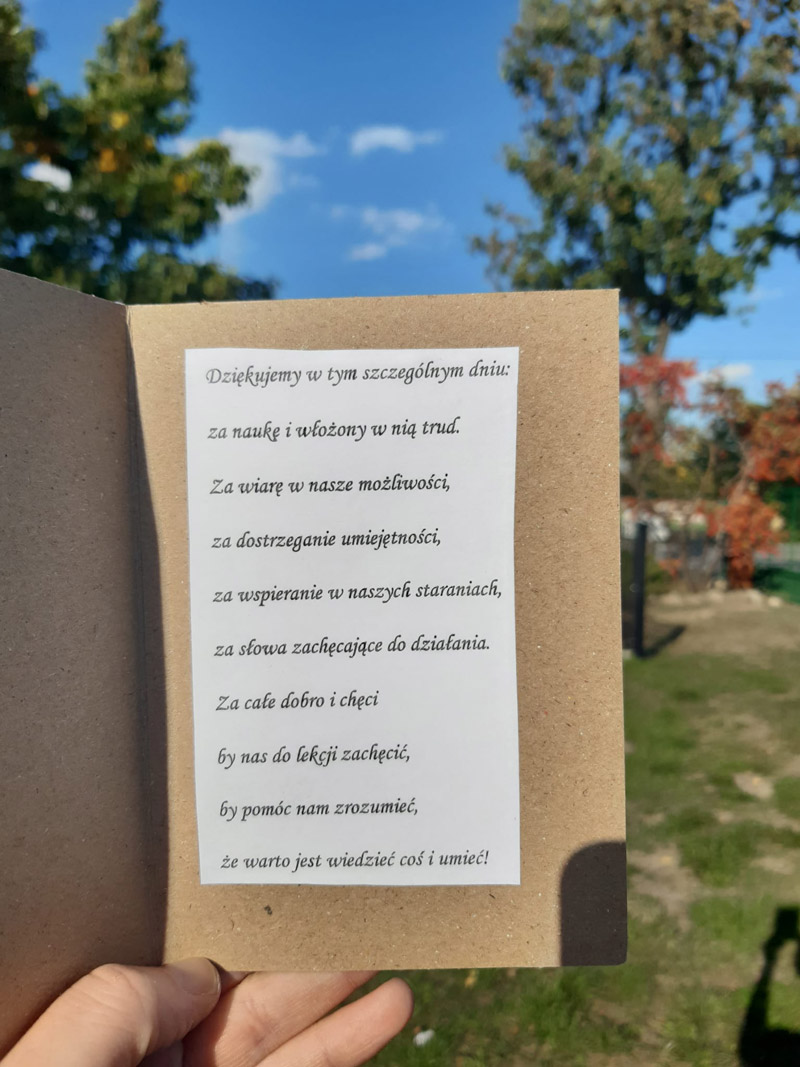 Dziękujemy w tym szczególnym dniu:
za naukę i włożony w nią trud.
Za wiarę w nasze możliwości,
za dostrzeganie umiejętności,
za wspieranie w naszych staraniach,
za słowa zachęcające do działania.
Za całe dobro i chęci
by nas do lekcji zachęcić,
by pomóc nam zrozumieć,
że warto jest wiedzieć coś i umieć!